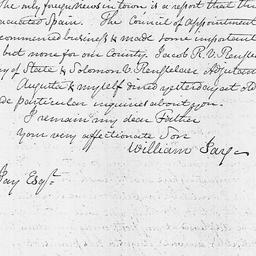 The only foreign news in town is a report that the
evacuated Spain. The Council of appointment
commenced business & made some important
but none for our County. Jacob R. V. Rensselaer
y of State & Solomon V. Rensselaer Adjutant
Augusta & myself dined yesterday at old
de particular inquiries about you.
I remain my dear Father
your very affectionate Son
William Jay
Jay Esqr.